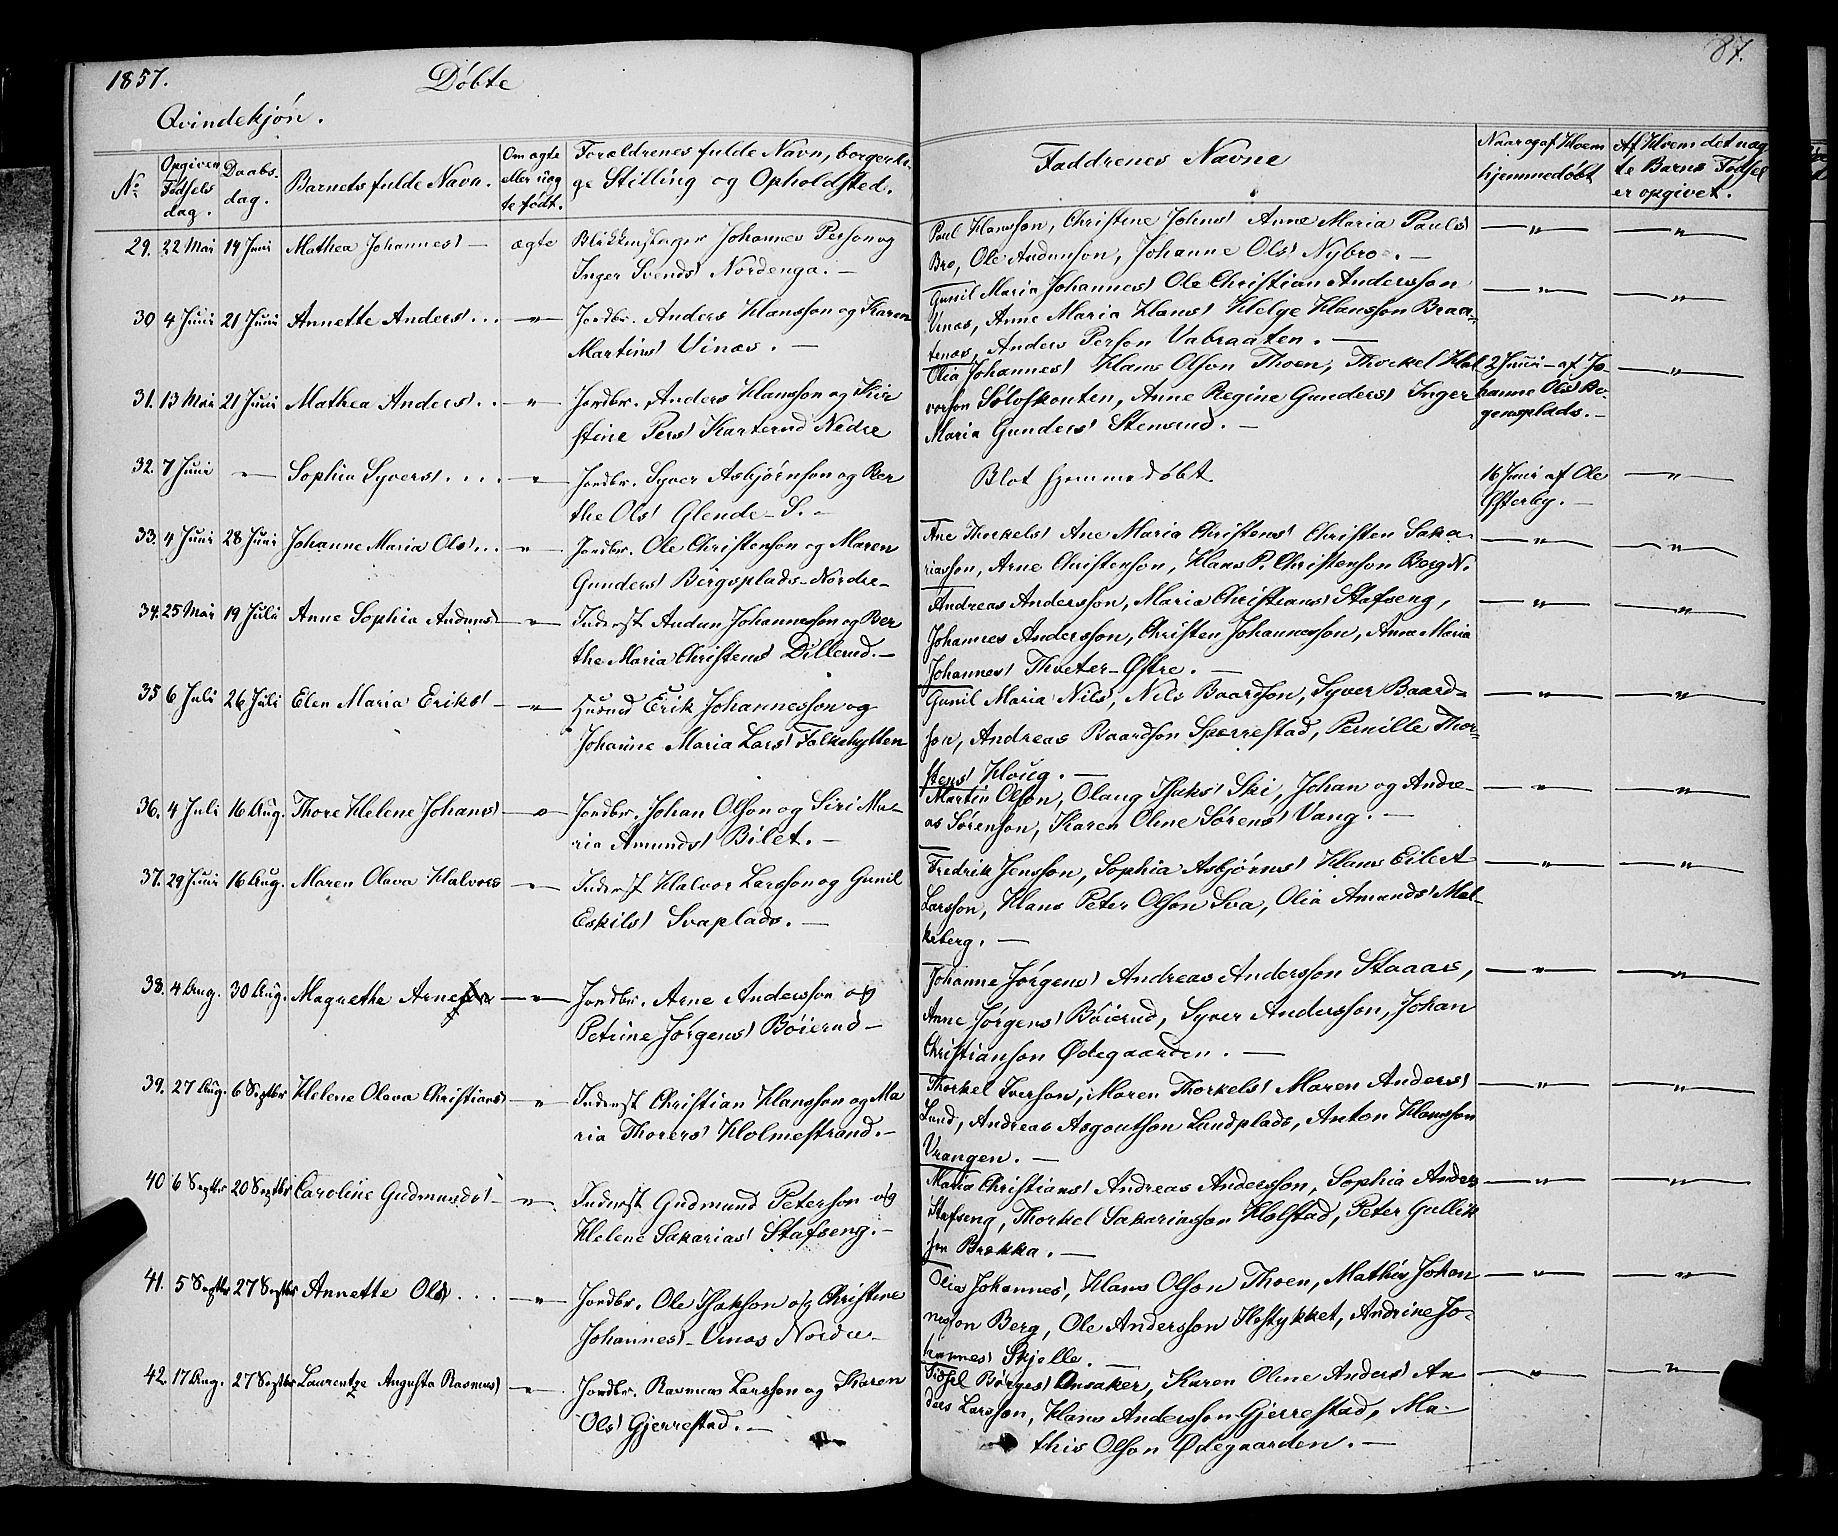 1857. Døbte
87.
Qvindekjøn.
No. Opgiven Fødsels dag. Daabs- dag. Barnets fulde Navn. Om ægte eller uæg te født. Forældrenes fulde Navn, borgerli- ge Stilling og Opholdsted. Faddrenes Navne Naar og af Hvem hjemmedøbt Af Hvem det uæg te Barns Fødsel er opgivet.
29. 22 Mai 14 Juni Mathea Johannes! — ægte Johannes Person og
Inger Svends! Nordenga. —
Paul Hansson, Christine Johns! Anne Maria Pauls!
Bro, Ole Andunson, Johanne Ols! Nybro. —
— " — — " —
30 4 Juni 21 Juni Annette Anders! . . . — " — Jordbr. Anders Hansson og Karen
Martins! Vinæs. —
Gunil Maria Johannes! Ole Christian Andersson
Vinæs, Anne Maria Hans! Helge Hansson Braa-
tenæs, Anders Person Vabraaten. —
— " — — " —
31. 13 Mai 21 Juni Mathea Anders! . . — " Jordbr. Anders Hansson og Kir
stine Pers! Karterud Nedre
Olia Johannes! Hans Olson Thoen, Thorkel Hal
vorson Soloskonten, Anne Regine Gunders! Inger
Maria Gunders! Stensrud. —
2 Juni – af Jo
hanne Ols! Bo-
gensplads. —
— " —
32. 7 Juni — Sophia Syvers! . . . . — " — Jordbr. Syver Asbjørnson og Ber
the Ols! Glende – S. –
Blot hjemmedøbt
16 Juni af Ole
Østerby. —
— " —
33. 4 Juni 28 Juni Johanne Maria Ols! . . . — " — Jordbr. Ole Christenson og Maren
Gunders! Bergsplads – Nordre –
Ane Thorkels! Ane Maria Christens! Christen Saka
riasson, Arne Christenson, Hans P. Christenson Berg N.
— " — — " —
34. 25 Mai 19 Juli Anne Sophia Anduns! — " — Inderst Andun Johannesson og Ber
the Maria Christens! Dillerud. —
Andreas Andersson, Maria Christians! Stafseng,
Johannes Andersson, Christen Johannesson, Anne Maria
Johannes! Thveter – Østre. —
— " — — " —
35 6 Juli 26 Juli Elen Maria Eriks! — — " — Husmd Erik Johannesson og
Johanne Maria Lars! Falkehytten
Gunil Maria Nils!, Nils Baardson, Syver Baard-
son, Andreas Baardson Sperrestad, Pernille Thor-
stens! Houg. —
— " — — " —
36. 4 Juli 16 Aug. Thore Helene Johans! — " — Jordbr. Johan Olson og Siri Ma-
ria Amunds! Bilet. —
Martin Olson, Olaug Isaks! Ski, Johan og Andre-
as Sørenson, Karen Oline Sørens! Vang. —
— " — — " —
37. 29 Juni 16 Aug. Maren Olava Halvors — " — Inderst Halvor Larsson og Gunil
Eskils! Svaplads. —
Fredrik Jensson, Sophia Asbjørns! Hans Eilert
Larsson, Hans Peter Olson Sva, Olia Amunds! Mel-
keberg. —
— " — — " —
38. 4 Aug. 30 Aug. Magrethe Arne — " — Jordbr. Arne Andersson og
Petrine Jørgens! Bøierud —
Johanne Jørgens! Andreas Andersson Staaas,
Anne Jørgens! Bøierud, Syver Andersson, Johan
Christianson Ødegaarden. —
— " — — " —
39. 27 Aug. 6 Septbr Helene Olava Christians! — " Inderst Christian Hansson og Ma
ria Thorers! Holmestrand. —
Thorkel Iverson, Maren Thorkels! Maren Anders!
Lund, Andreas Asgoutson Lundplads, Anton Hansson
Vrangen. —
— " — — " —
40 6 Septbr 20 Septbr Caroline Gudmunds! — " — Inderst Gudmund Peterson og
Helene Sakarias! Stafseng. —
Maria Christians! Andreas Andersson, Sophia Anders
Stafseng, Thorkel Sakariasson Holstad, Peter Gullik
son Brekka. —
— " — — " —
41. 5 Septbr 27 Septbr Annette Ols! . . . — " — Jordbr. Ole Isakson og Christine
Johannes! – Vinæs Nordre –
Olia Johannes!, Hans Olson Thoen, Mathis Johan
nesson Berg, Ole Andersson Hestykket, Andrine Jo-
hannes! Skjelle. —
— " — — " —
42. 17 Aug. 27 Septbr Laurentze Augusta Rasmus! — " — Jordbr. Rasmus Larsson og Karen
Ols! Gjerrestad. —
Sidsel Børges! Onsaker, Karen Oline Anders! An
ders Larsson, Hans Andersson Gjerrestad, Ma-
this Olson Ødegaarden. —
— " — "